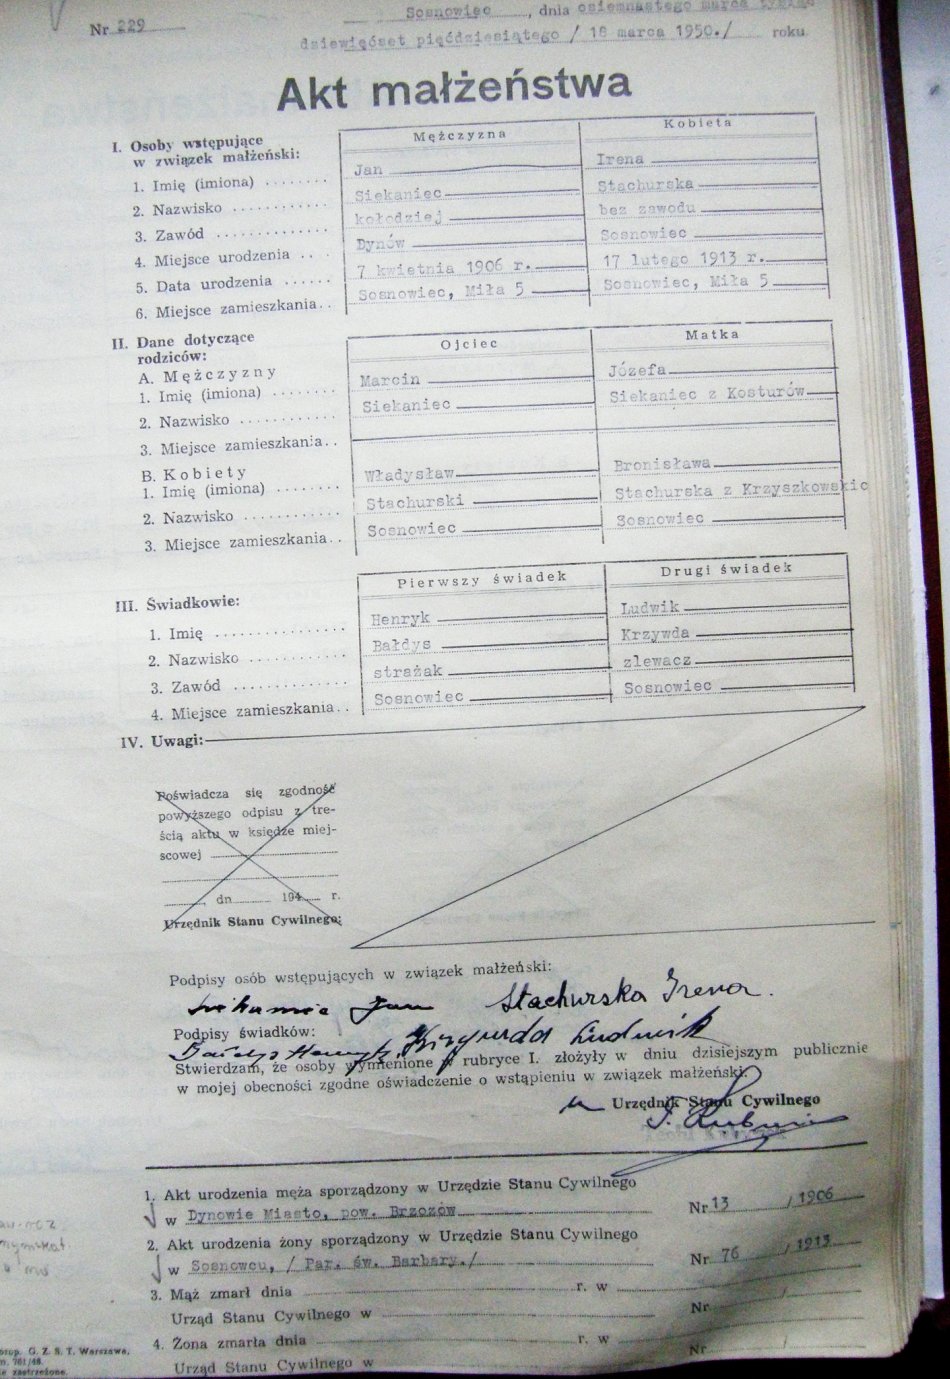 Nr 229
Sosnowiec, dnia osiemnastego marca tysiąc
dziewięćset pięćdziesiątego / 18 marca 1950./ roku
Akt małżeństwa
I. Osoby wstępujące
w związek małżeński:
Mężczyzna Kobieta
1. Imię (imiona) Jan Irena
2. Nazwisko Siekaniec Stachurska
3. Zawód kołodziej bez zawodu
4. Miejsce urodzenia Dynów Sosnowiec
5. Data urodzenia 7 kwietnia 1906 r. 17 lutego 1913 r.
6. Miejsce zamieszkania Sosnowiec, Miła 5 Sosnowiec, Miła 5
II. Dane dotyczące
rodziców:
Ojciec Matka
A. Mężczyzny
1. Imię (imiona) Marcin Józefa
2. Nazwisko Siekaniec Siekaniec z Kosturów
3. Miejsce zamieszkania
B. Kobiety
1. Imię (imiona) Władysław Bronisława
2. Nazwisko Stachurski Stachurska z Krzyszkowskic
3. Miejsce zamieszkania Sosnowiec Sosnowiec
III. Świadkowie:
Pierwszy świadek Drugi świadek
1. Imię Henryk Ludwik
2. Nazwisko Bałdys Krzywda
3. Zawód strażak zlewacz
4. Miejsce zamieszkania Sosnowiec Sosnowiec
IV. Uwagi:
Poświadcza się zgodność
powyższego odpisu z tre-
ścią aktu w księdze miej-
scowej
dn 194 r.
Urzędnik Stanu Cywilnego:
Podpisy osób wstępujących w związek małżeński:
Jan Stachurska Irena.
Podpisy świadków:
Bałdys Henryk, Krzywda Ludwik
Stwierdzam, że osoby wymienione w rubryce I. złożyły w dniu dzisiejszym publicznie
w mojej obecności zgodne oświadczenie o wstąpieniu w związek małżeński.
Urzędnik Stanu Cywilnego
1. Akt urodzenia męża sporządzony w Urzędzie Stanu Cywilnego
w Dynowie Miasto, pow. Brzozów Nr 13 / 1906
2. Akt urodzenia żony sporządzony w Urzędzie Stanu Cywilnego
w Sosnowcu, / Par. św. Barbary./ Nr 76 / 1913
3. Mąż zmarł dnia r. w
Urząd Stanu Cywilnego w Nr /
4. Żona zmarła dnia r. w
Urząd Stanu Cywilnego w Nr /
G. Z. S. T. Warszawa.
761/48.
zastrzeżone.